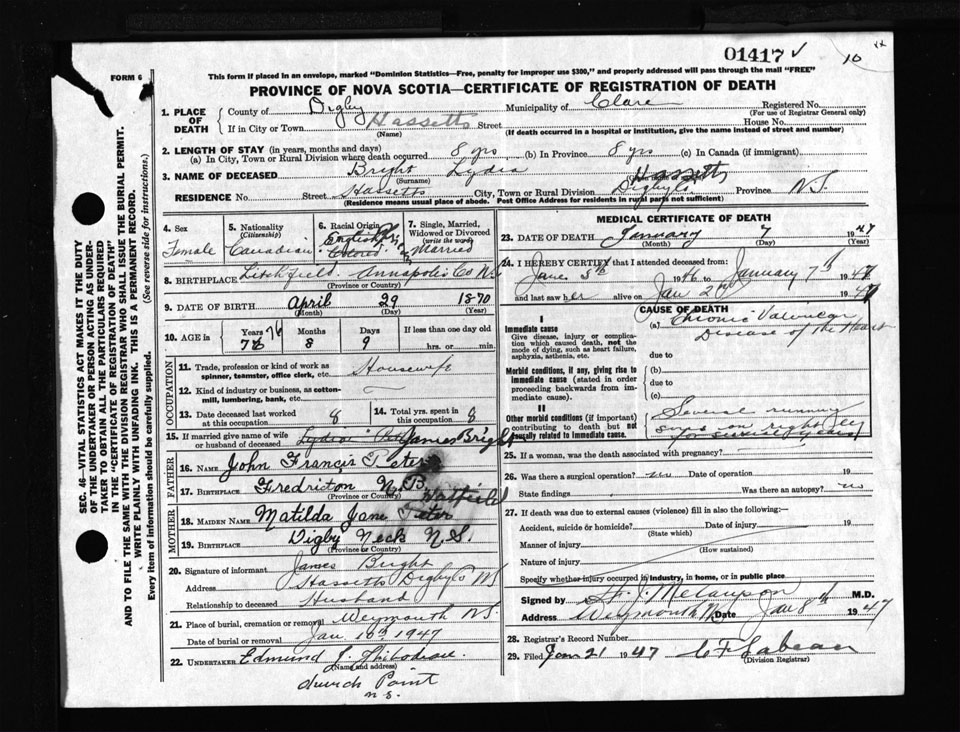 01417 ✓ 10
FORM 6
This form if placed in an envelope, marked "Dominion Statistics—Free, penalty for improper use $300," and properly addressed will pass through the mail "FREE"
PROVINCE OF NOVA SCOTIA—CERTIFICATE OF REGISTRATION OF DEATH
SEC. 46—VITAL STATISTICS ACT MAKES IT THE DUTY
OF THE UNDERTAKER OR PERSON ACTING AS UNDER-
TAKER TO OBTAIN ALL THE PARTICULARS REQUIRED
IN THE "CERTIFICATE OF REGISTRATION OF DEATH"
AND TO FILE THE SAME WITH THE DIVISION REGISTRAR WHO SHALL ISSUE THE BURIAL PERMIT.
WRITE PLAINLY WITH UNFADING INK. THIS IS A PERMANENT RECORD.
Every item of information should be carefully supplied. (See reverse side for instructions.)
1. PLACE OF DEATH County of Digby Municipality of Clare Registered No.
(For use of Registrar General only)
If in City or Town Hassetts Street House No.
(Name) (If death occurred in a hospital or institution, give the name instead of street and number)
2. LENGTH OF STAY (in years, months and days)
(a) In City, Town or Rural Division where death occurred 8 yrs (b) In Province 8 yrs (c) In Canada (if immigrant)
3. NAME OF DECEASED Bright Lydia
(Surname)
Hassetts
RESIDENCE No. Street Hassetts City, Town or Rural Division Digby Co Province N.S.
(Residence means usual place of abode. Post Office Address for residents in rural parts not sufficient)
4. Sex Female
5. Nationality (Citizenship) Canadian
6. Racial Origin English Colored
7. Single, Married, Widowed or Divorced (write the word) Married
8. BIRTHPLACE Litchfield Annapolis Co N.S.
(Province or Country)
9. DATE OF BIRTH April 29 1870
(Month) (Day) (Year)
10. AGE in Years 76 Months 8 Days 9 If less than one day old hrs. or min.
OCCUPATION
11. Trade, profession or kind of work as spinner, teamster, office clerk, etc. Housewife
12. Kind of industry or business, as cotton-mill, lumbering, bank, etc. —
13. Date deceased last worked at this occupation 8 14. Total yrs. spent in this occupation 8
15. If married give name of wife or husband of deceased Lydia James Bright
FATHER
16. Name John Francis Peters
17. Birthplace Fredricton N.B.
(Province or Country)
Hatfield
MOTHER
18. Maiden Name Matilda Jane Peter
19. Birthplace Digby Neck N.S.
(Province or Country)
20. Signature of informant James Bright
Address Hassetts Digby Co NS
Relationship to deceased Husband
21. Place of burial, cremation or removal Weymouth NS
Date of burial or removal Jan 10th 1947
22. UNDERTAKER Edmund J. Thibodeau
(Name and address)
Church Point
N.S.
MEDICAL CERTIFICATE OF DEATH
23. DATE OF DEATH January 7 1947
(Month) (Day) (Year)
24. I HEREBY CERTIFY that I attended deceased from
June 5th 1946 to January 7th 1947
and last saw her alive on Jan 2nd 1947
CAUSE OF DEATH
I
Immediate cause
Give disease, injury or complication which caused death, not the mode of dying, such as heart failure, asphyxia, asthenia, etc.
(a) Chronic Valvular
Disease of the Heart
due to
Morbid conditions, if any, giving rise to immediate cause (stated in order proceeding backwards from immediate cause).
(b)
due to
(c)
II
Other morbid conditions (if important) contributing to death but not causally related to immediate cause.
Several running
sores on right leg
for several years
25. If a woman, was the death associated with pregnancy?
26. Was there a surgical operation? no Date of operation 19
State findings Was there an autopsy? no
27. If death was due to external causes (violence) fill in also the following:—
Accident, suicide or homicide? Date of injury 19
(State which)
Manner of injury
(How sustained)
Nature of injury
Specify whether injury occurred in industry, in home, or in public place
Signed by M.D.
Address Weymouth N.S. Date Jan 8th 1947
28. Registrar's Record Number
29. Filed Jan 21 1947
(Division Registrar)